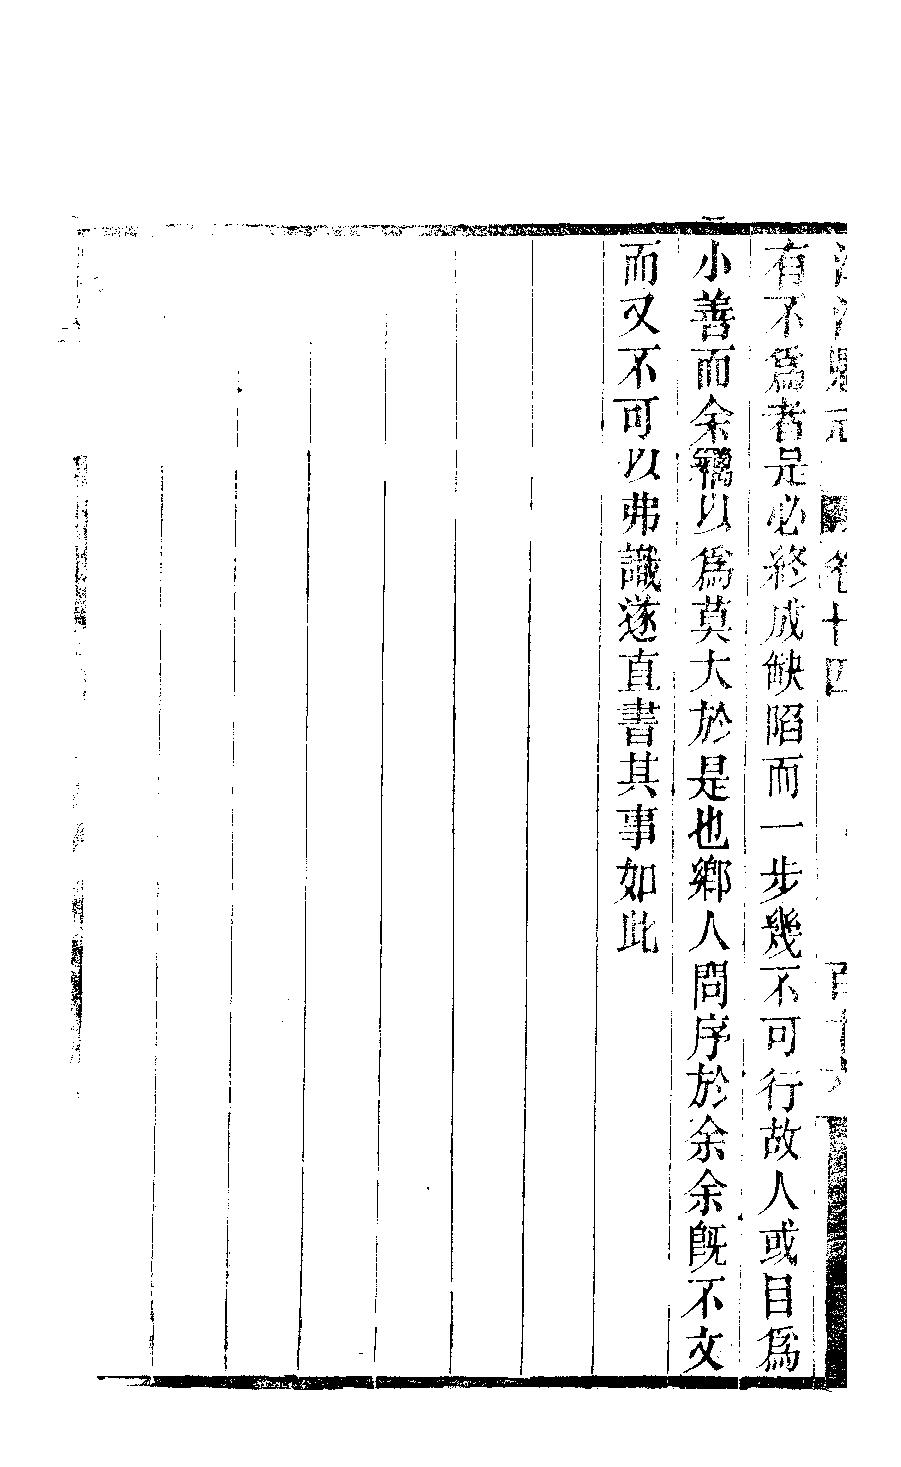 有不爲者是必終成缺陷而一步幾不可行故人或目爲
小善而余竊以爲莫大於是也鄉人問序於余余旣不文
而又不可以弗識遂直書其事如此
卷十四